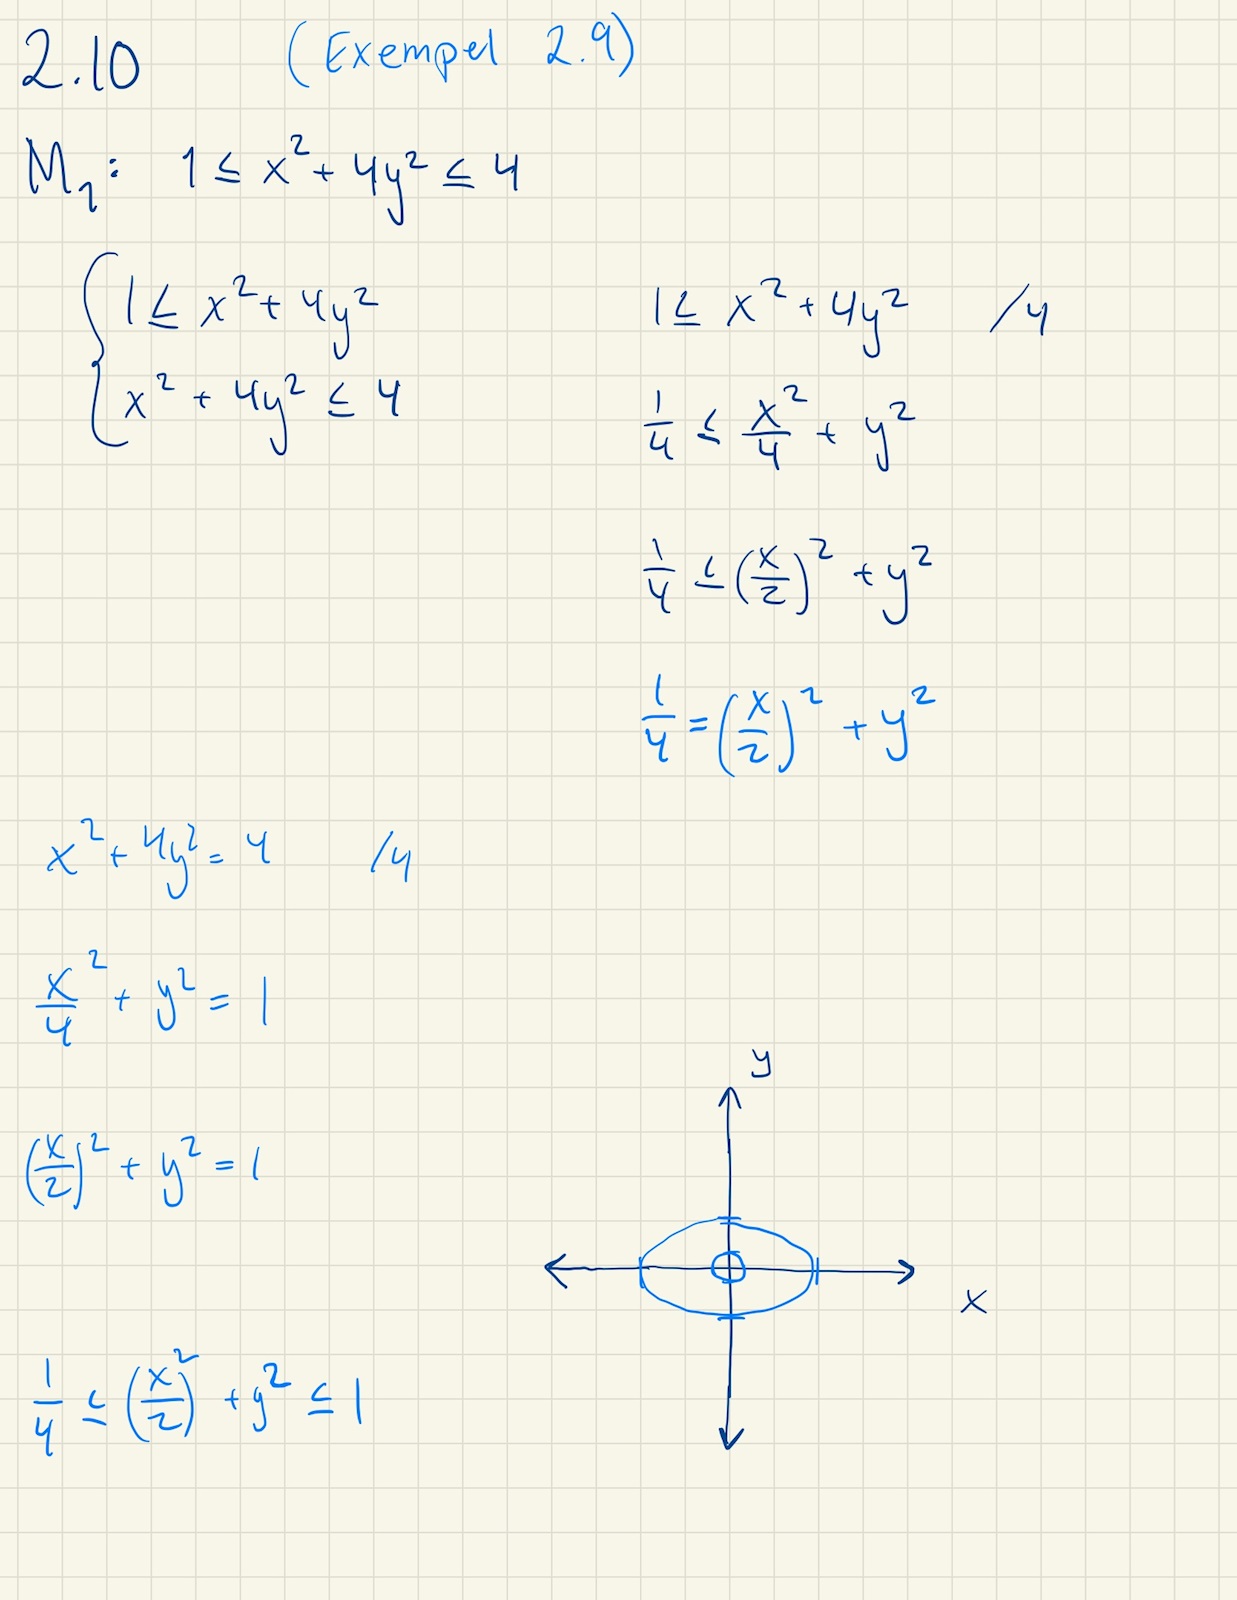 2.10 (Exempel 2.9)
M₁: 1 ≤ x² + 4y² ≤ 4
{ 1 ≤ x² + 4y²
x² + 4y² ≤ 4
1 ≤ x² + 4y² /4
1/4 ≤ x²/4 + y²
1/4 ≤ (x/2)² + y²
1/4 = (x/2)² + y²
x² + 4y² = 4 /4
x²/4 + y² = 1
(x/2)² + y² = 1
1/4 ≤ (x²/2) + y² ≤ 1
y
x